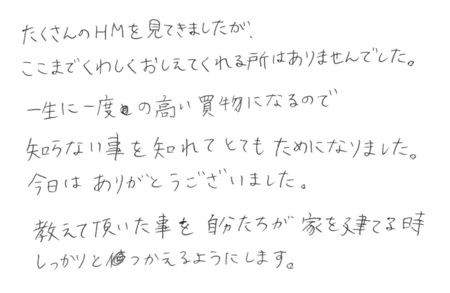 たくさんのHMを見てきましたが、
ここまでくわしくおしえてくれる所はありませんでした。
一生に一度の高い買物になるので
知らない事を知れてとてもためになりました。
今日はありがとうございました。
教えて頂いた事を自分たちが家を建てる時
しっかりとつかえるようにします。